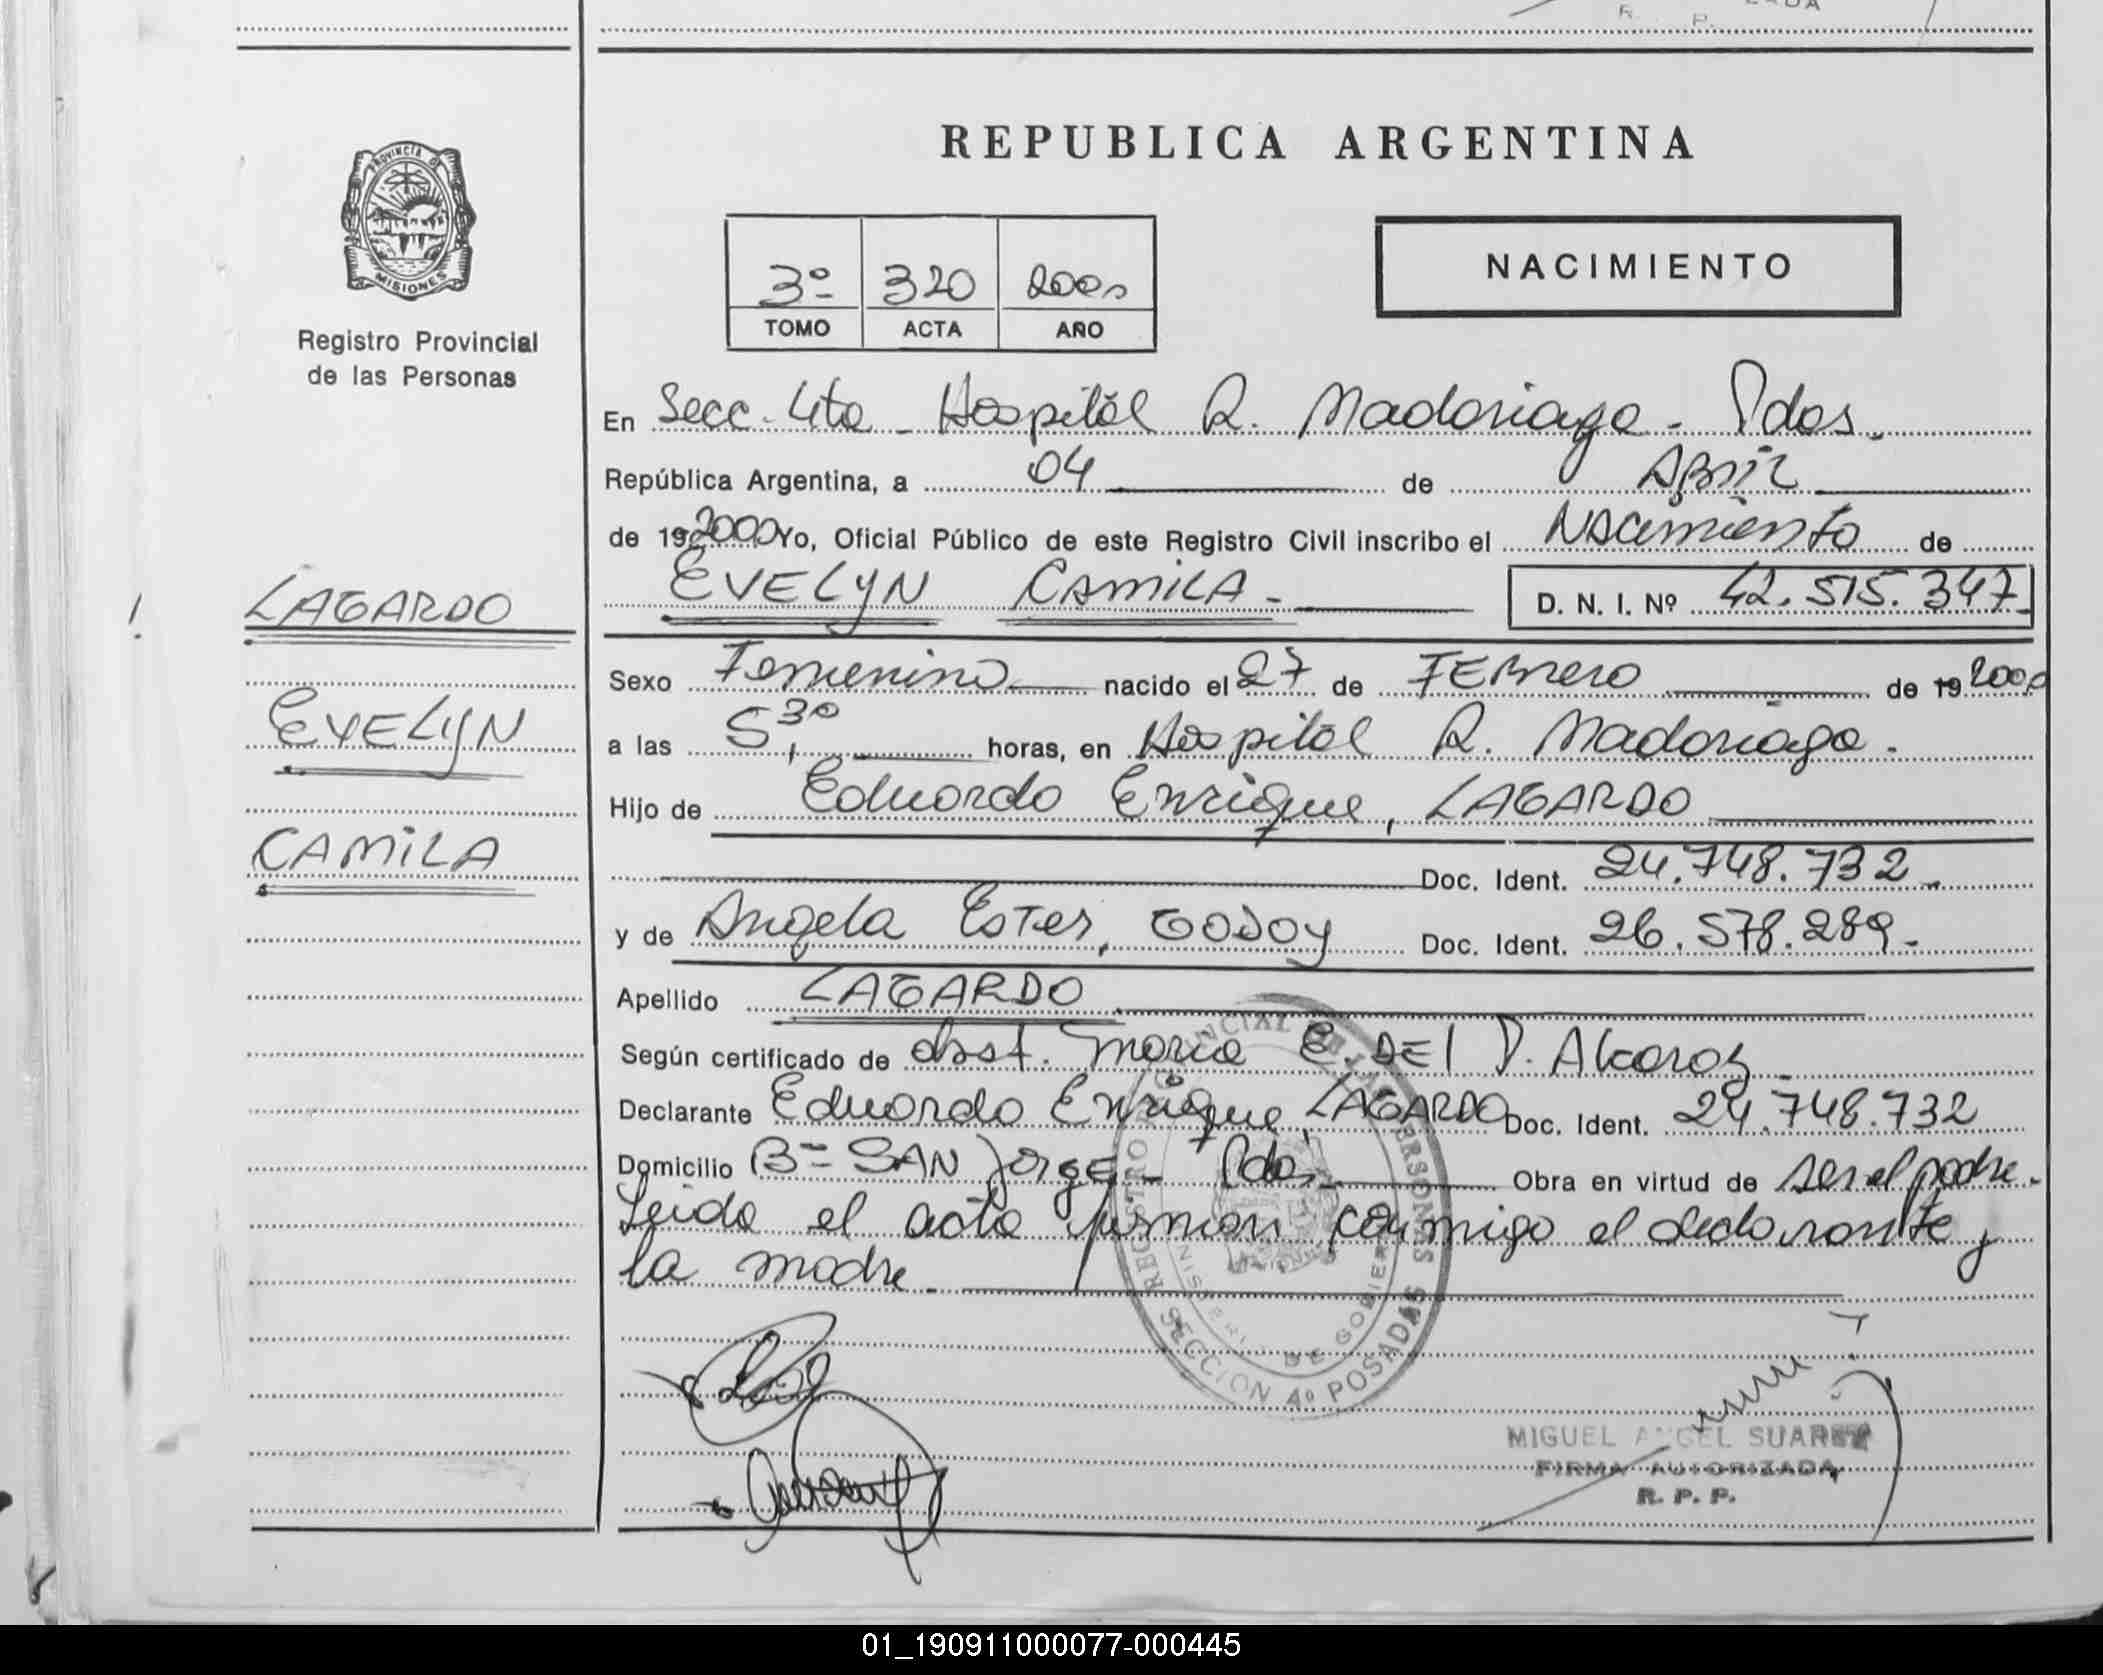 R. P.
REPUBLICA ARGENTINA
PROVINCIA DE
MISIONES
Registro Provincial
de las Personas
3º 320 2000
TOMO ACTA AÑO
NACIMIENTO
En Secc. 4ta - Hospital R. Madariaga - Pdas.
República Argentina, a 04 de Abril
de 19 2000 Yo, Oficial Público de este Registro Civil inscribo el Nacimiento de
EVELYN CAMILA - D. N. I. Nº 42.515.347
LAGARDO
EVELYN
CAMILA
Sexo Femenino nacido el 27 de FEBrero de 19 2000
a las 5,30 horas, en Hospital R. Madariaga.
Hijo de Eduardo Enrique, LAGARDO
Doc. Ident. 24.748.732
y de Angela Ester, GODOY Doc. Ident. 26.578.289.
Apellido LAGARDO
Según certificado de obst. Maria E. DEl V. Alcaraz
Declarante Eduardo Enrique, LAGARDO Doc. Ident. 24.748.732
Domicilio Bº SAN JorgE - Pdas. Obra en virtud de ser el padre.
Leida el acta firman conmigo el declarante y
la madre.
REGISTRO PROVINCIAL DE LAS PERSONAS
MINISTERIO DE GOBIERNO
SECCION 4º POSADAS
MIGUEL ANGEL SUAREZ
FIRMA AUTORIZADA
R. P. P.
01_190911000077-000445